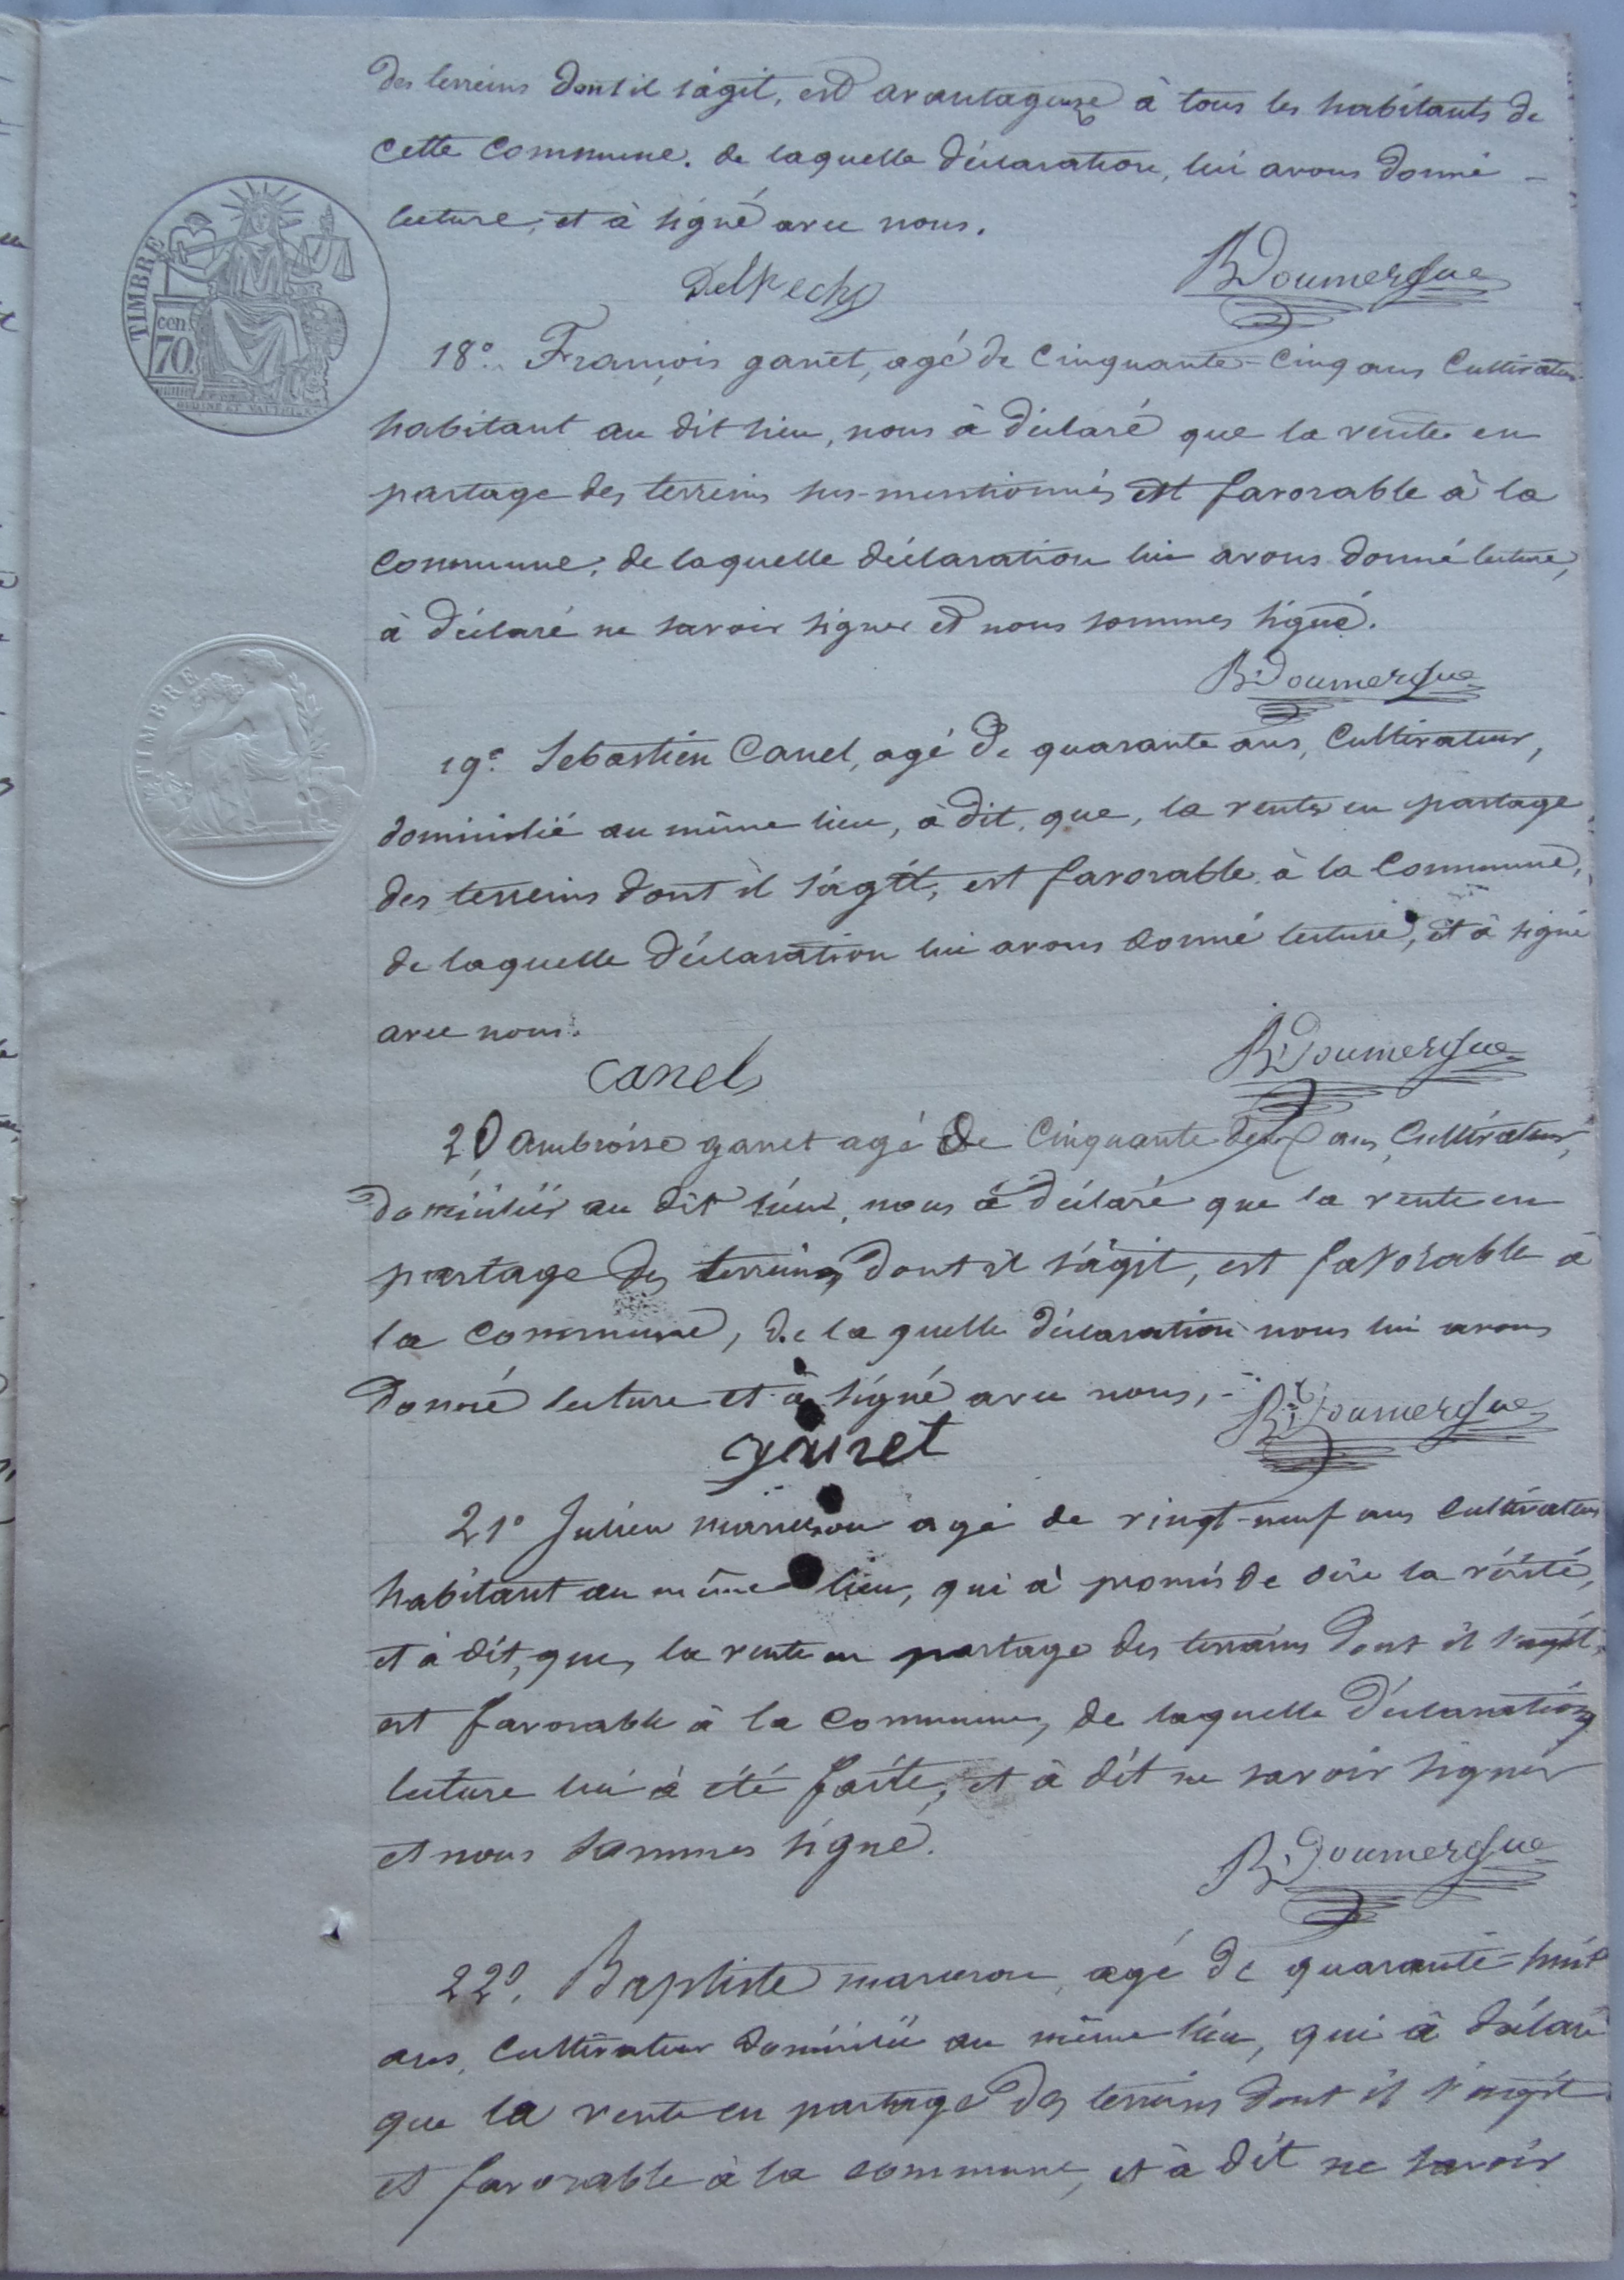 des terreins dont il s'agit, est avantageuse à tous les habitants de
cette commune. de laquelle déclaration, lui avons donné -
lecture, et à signé avec nous.
Delpech
R. Doumergue
TIMBRE
cen.
70
18° François ganet, agé de Cinquante-Cinq ans Cultivateur
habitant au dit lieu, nous à déclaré que la vente en
partage des terreins sus-mentionnés est favorable à la
commune. de laquelle déclaration lui avons donné lecture,
à déclaré ne savoir signer et nous sommes signé.
R. Doumergue
TIMBRE
19° Sebastien Canel, agé de quarante ans, Cultivateur,
domicilié au même lieu, à dit, que, la vente en partage
des terreins dont il s'agit, est favorable à la Commune,
de laquelle déclaration lui avons donné lecture, et à signé
avec nous.
Canel
R. Doumergue
20 ambroise ganet agé de Cinquante deux ans, Cultivateur,
domicilié au dit lieu, nous à déclaré que la vente en
partage des terreins dont il s'agit, est favorable à
la commune, de la quelle déclaration nous lui avons
donné lecture et à signé avec nous, -
R. Doumergue
ganet
21° Julien agé de vingt-neuf ans Cultivateur
habitant au même lieu, qui à promis de dire la vérité,
et à dit, que, la vente en partage des terrains dont il s'agit,
est favorable à la Commune, de laquelle déclaration
lecture lui à été faite, et à dit ne savoir signer
et nous sommes signé.
R. Doumergue
22° Baptiste agé de quarante-huit
ans, Cultivateur domicilié au même lieu, qui à déclaré
que la vente en partage des terreins dont il s'agit
est favorable à la commune, et à dit ne savoir